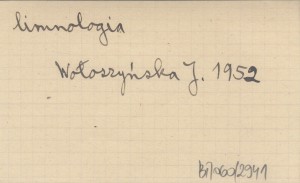 limnologia
Wołoszyńska J. 1952
Bi/060/2941